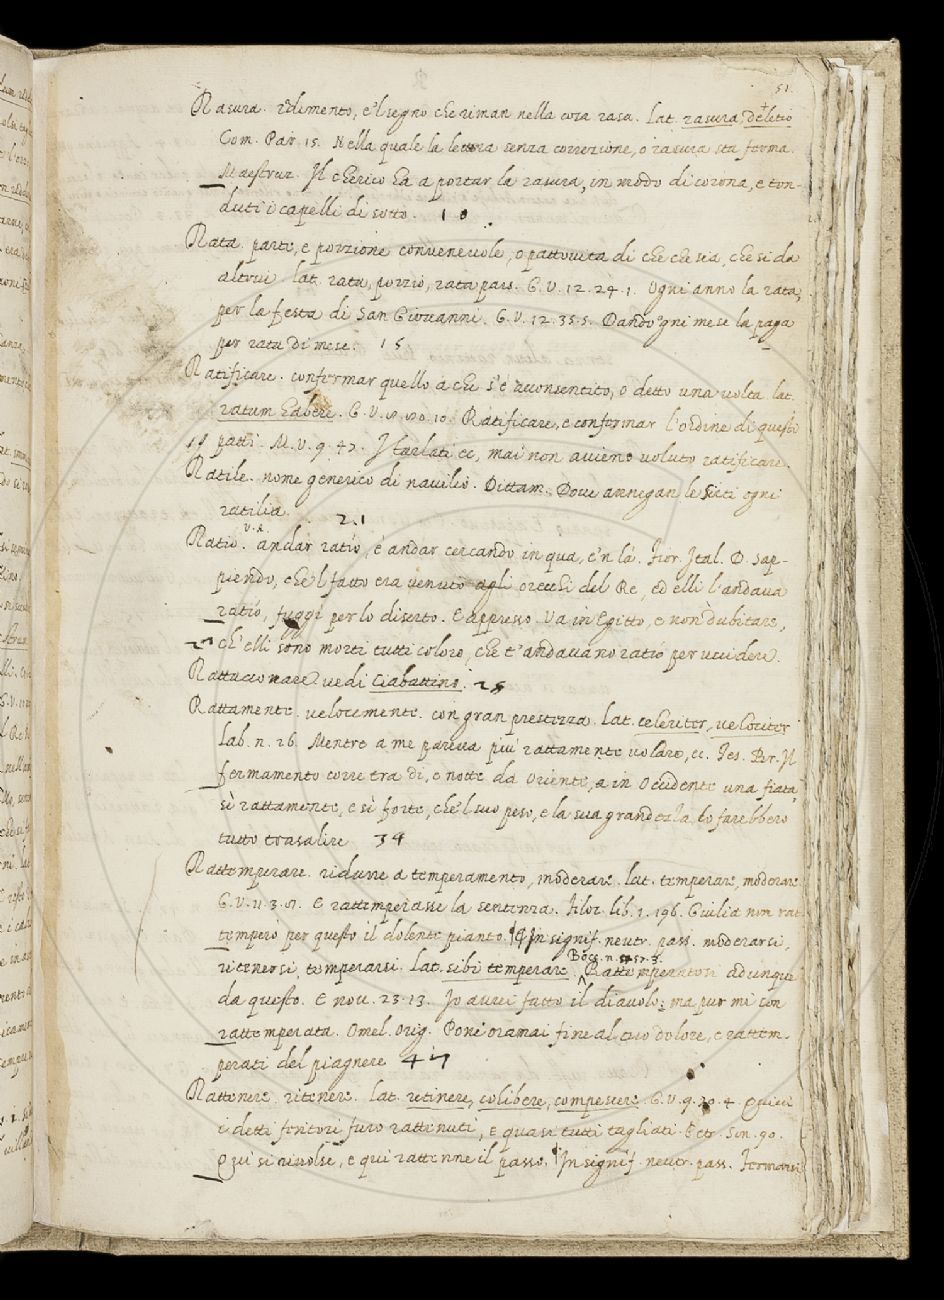 51.
Rasura. rdimento, e'l segno che riman nella cosa rasa. lat. rasura, deletio
Com. Par. 15. Nella quale la lettera senza correzione, o rasura sta ferma.
Maestruz. Il cherico ha a portar la rasura, in modo di corona, e ton-
duti i capelli di sotto. 10
Rata. parte, e porzione convenevole, o pattovita di che che sia, che si da
altrui lat. rata, porzio, rata pars. G. V. 12. 24. 1. Ogni anno la rata,
per la festa di San Giovanni. G. V. 12. 35. 5. Dando ogni mese la paga
per rata di mese. 15
Ratificare. confermar quello a che s'è acconsentito, o detto una volta lat.
ratum habere. G. V. 10. Ratificare, e confermar l'ordine di questi
18 patti. M. V. 9. 47. I tarlati ec, mai non avieno voluto ratificare.
Ratile. nome generico di navilio. Dittam. Dove annegan le ogni
ratilia. 21
V. A.
Ratio. andar ratio, è andar cercando in qua, e'n là. Fior. Ital. D. Sap-
piendo, che'l fatto era venuto agli orecchi del Re, ed elli l'andava
ratio, fuggi per lo diserto. E appresso. Va in Egitto, e non dubitare,
ch'elli sono morti tutti coloro, che t'andavano ratio per uccidere.
Rattacconare vedi Ciabattino.
Rattamente. velocemente. con gran prestezza. lat. celeriter, velociter
Lab. n. 26. Mentre a me pareva più rattamente volare, ec. Tes. Br. Il
fermamento corre tra dì, e notte da Oriente, a in Occidente una fiata
sì rattamente, e sì forte, che'l suo peso, e la sua grandezza, lo farebbero
tutto trasalire 34
Rattemperare. ridurre a temperamento, moderare. lat. temperare, moderare
G. V. 11. 3. E rattemperasse la sentenza. Filoc. lib. 1. 196. Giulia non rat
temperò per questo il dolente pianto. In signif. neutr. pass. moderarsi,
Bocc. n.
ritenersi, temperarsi. lat. sibi temperare. Rattemperatosi adunque
da questo. E nov. 23. 13. Io avrei fatto il diavolo; ma pur mi son
rattemperata. Omel. Orig. Poni oramai fine al tuo dolore, e rattem-
perati del piagnere 47
Rattenere. ritenere. lat. retinere, cohibere, compescere. G. V. 9. 20. 4. Quivi
i detti furo rattenuti, e quasi tutti tagliati. Petr. Son. 90.
Qui si rivolse, e qui rattenne il passo. In signif. neutr. pass. Fermarsi